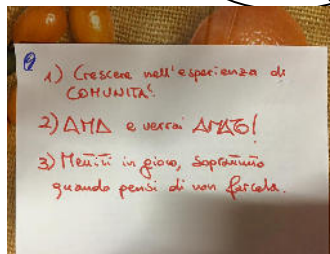 1) Crescere nell'esperienza di
COMUNITA'.
2) AMA e verrai AMATO!
3) Mettiti in gioco, soprattutto
quando pensi di non farcela.